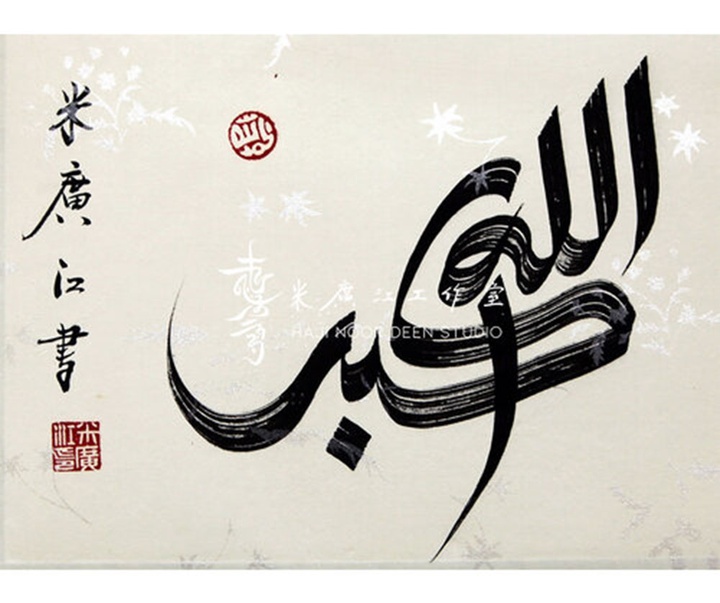 الله أكبر
米廣江書
米廣江印
米广江工作室
HAJI NOOR DEEN STUDIO